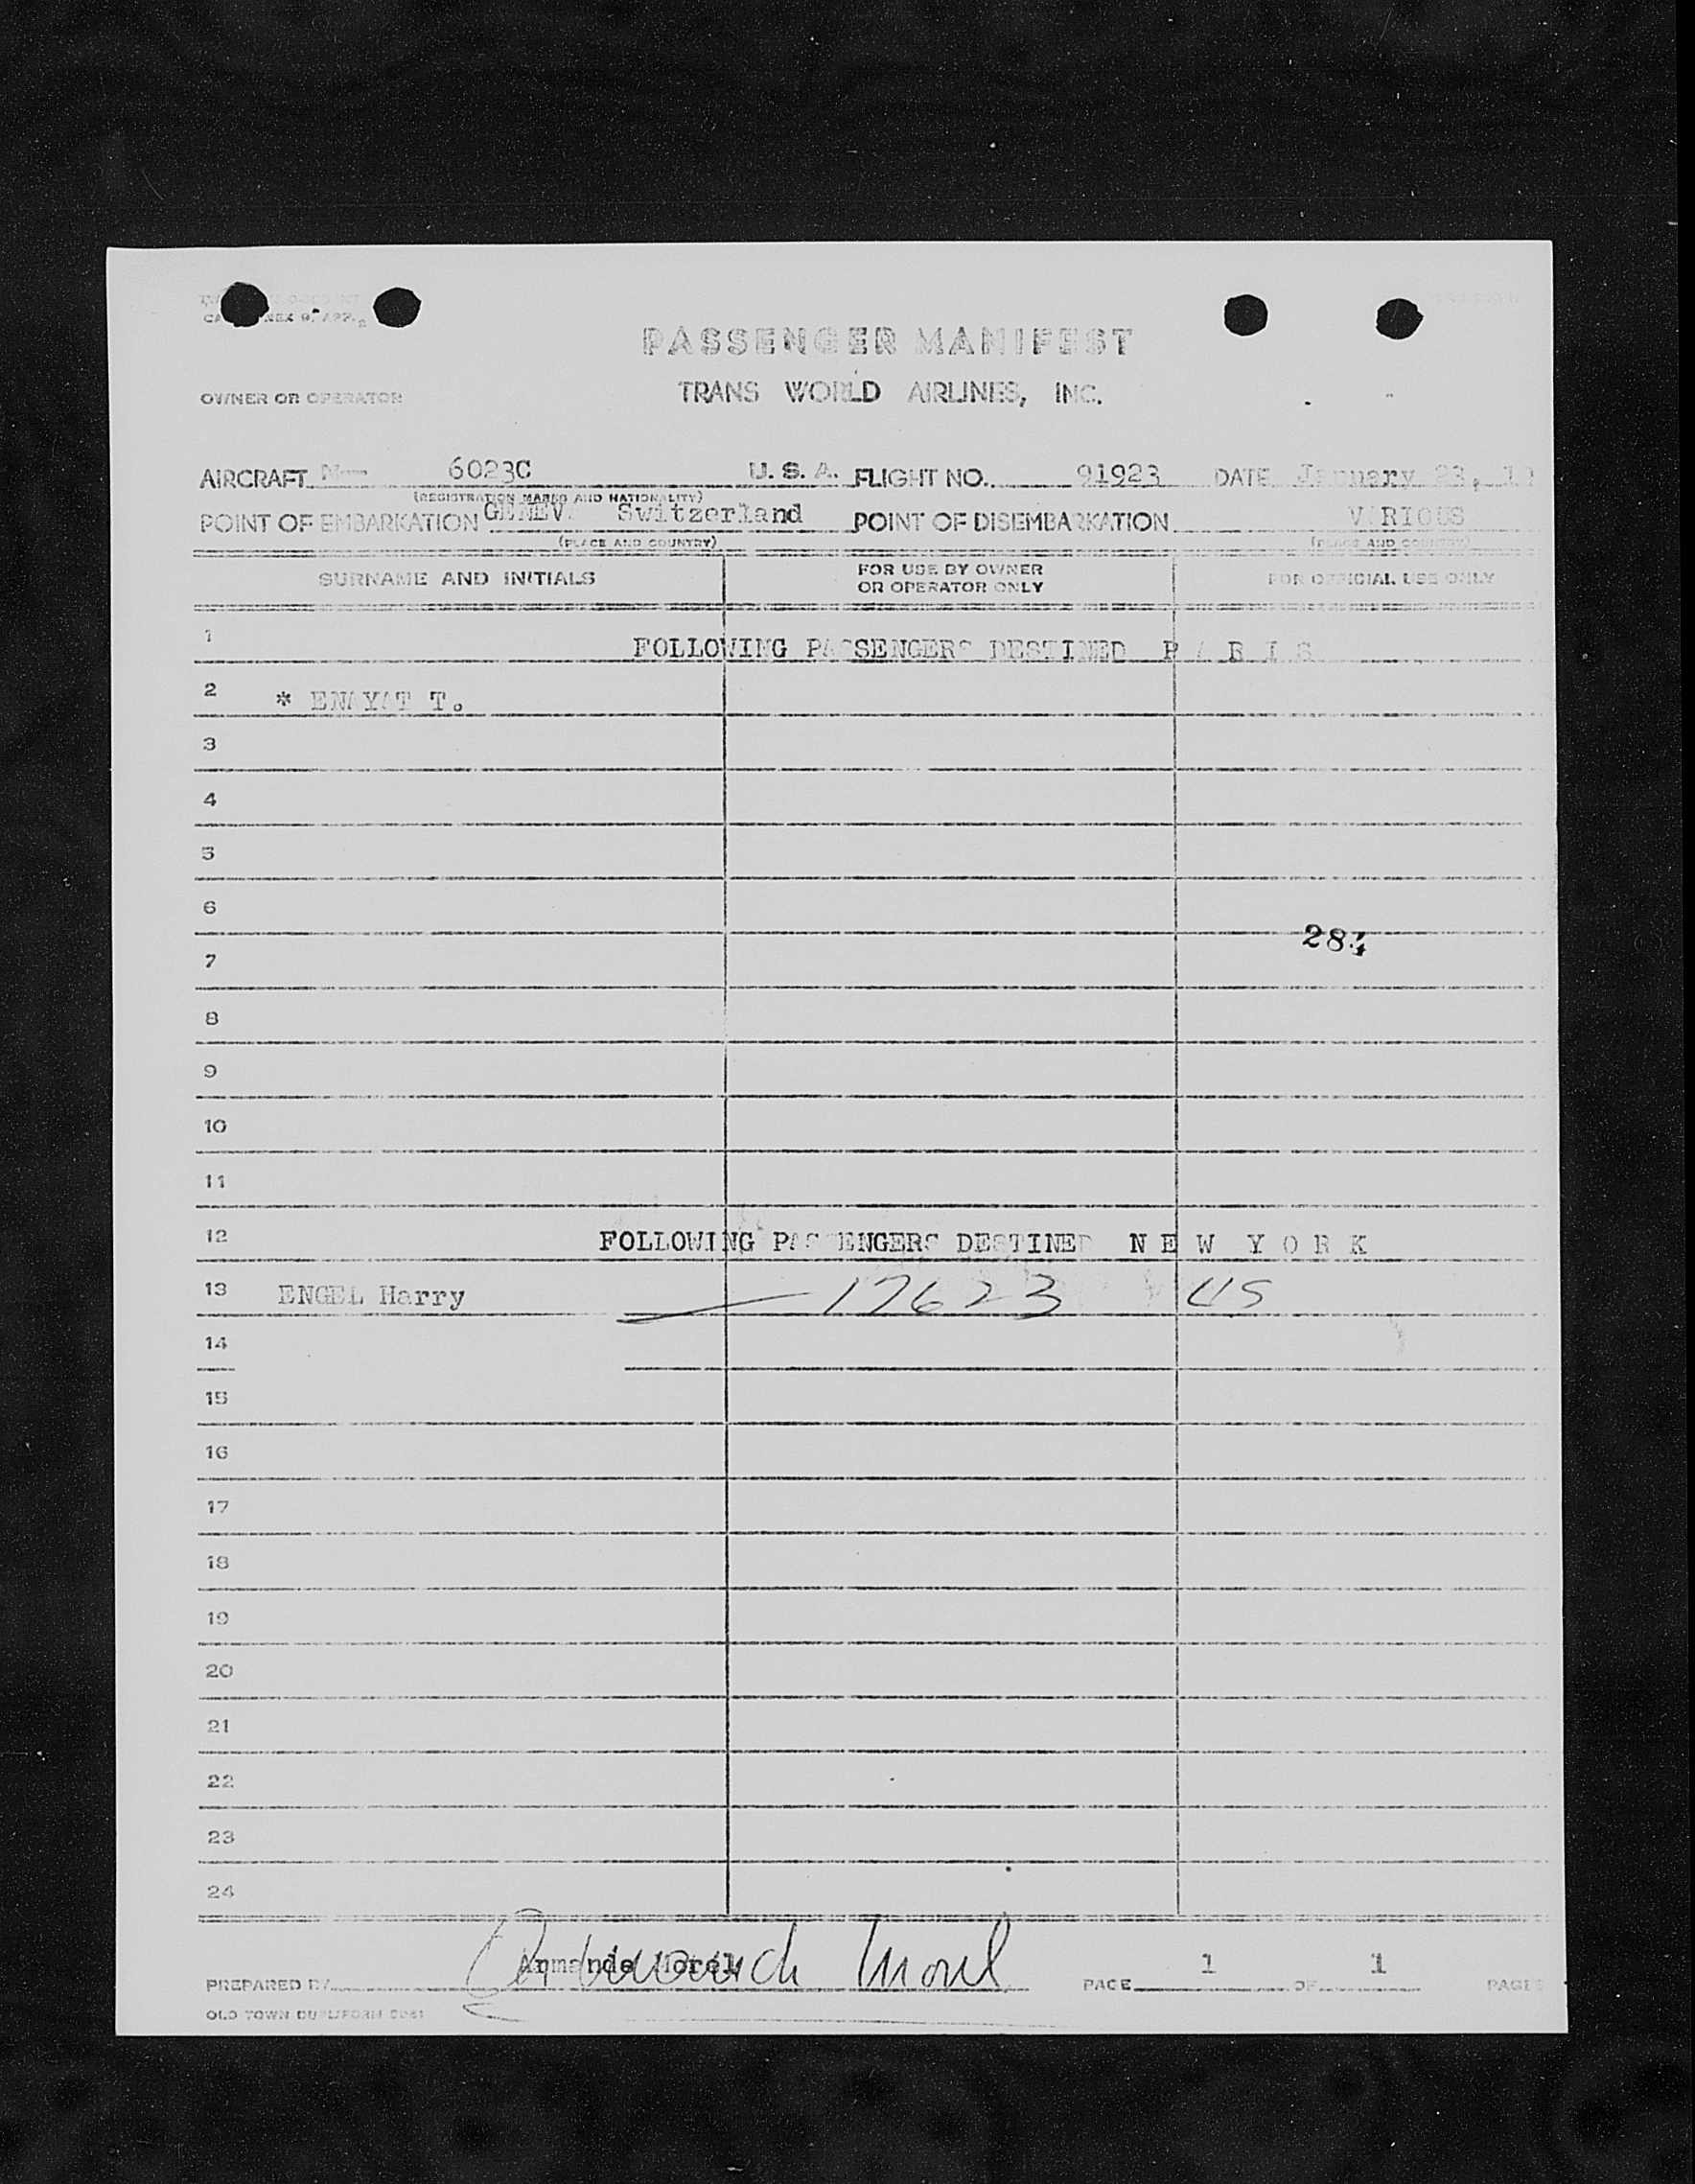 PASSENGER MANIFEST
OWNER OR OPERATOR TRANS WORLD AIRLINES, INC.
AIRCRAFT N-- 6023C U. S. A. FLIGHT NO. 91923 DATE January 23,
(REGISTRATION MARKS AND NATIONALITY)
POINT OF EMBARKATION GENEVA Switzerland POINT OF DISEMBARKATION VARIOUS
(PLACE AND COUNTRY) (PLACE AND COUNTRY)
SURNAME AND INITIALS FOR USE BY OWNER OR OPERATOR ONLY FOR OFFICIAL USE ONLY
1 FOLLOWING PASSENGERS DESTINED P A R I S
2 * ENAYAT T.
3
4
5
6
284
7
8
9
10
11
12 FOLLOWING PASSENGERS DESTINED N E W Y O R K
13 ENGEL Harry 17623 US
14
15
16
17
18
19
20
21
22
23
24
PREPARED BY Armande Morel PAGE 1 OF 1 PAGES
OLD TOWN DUPLIFORM